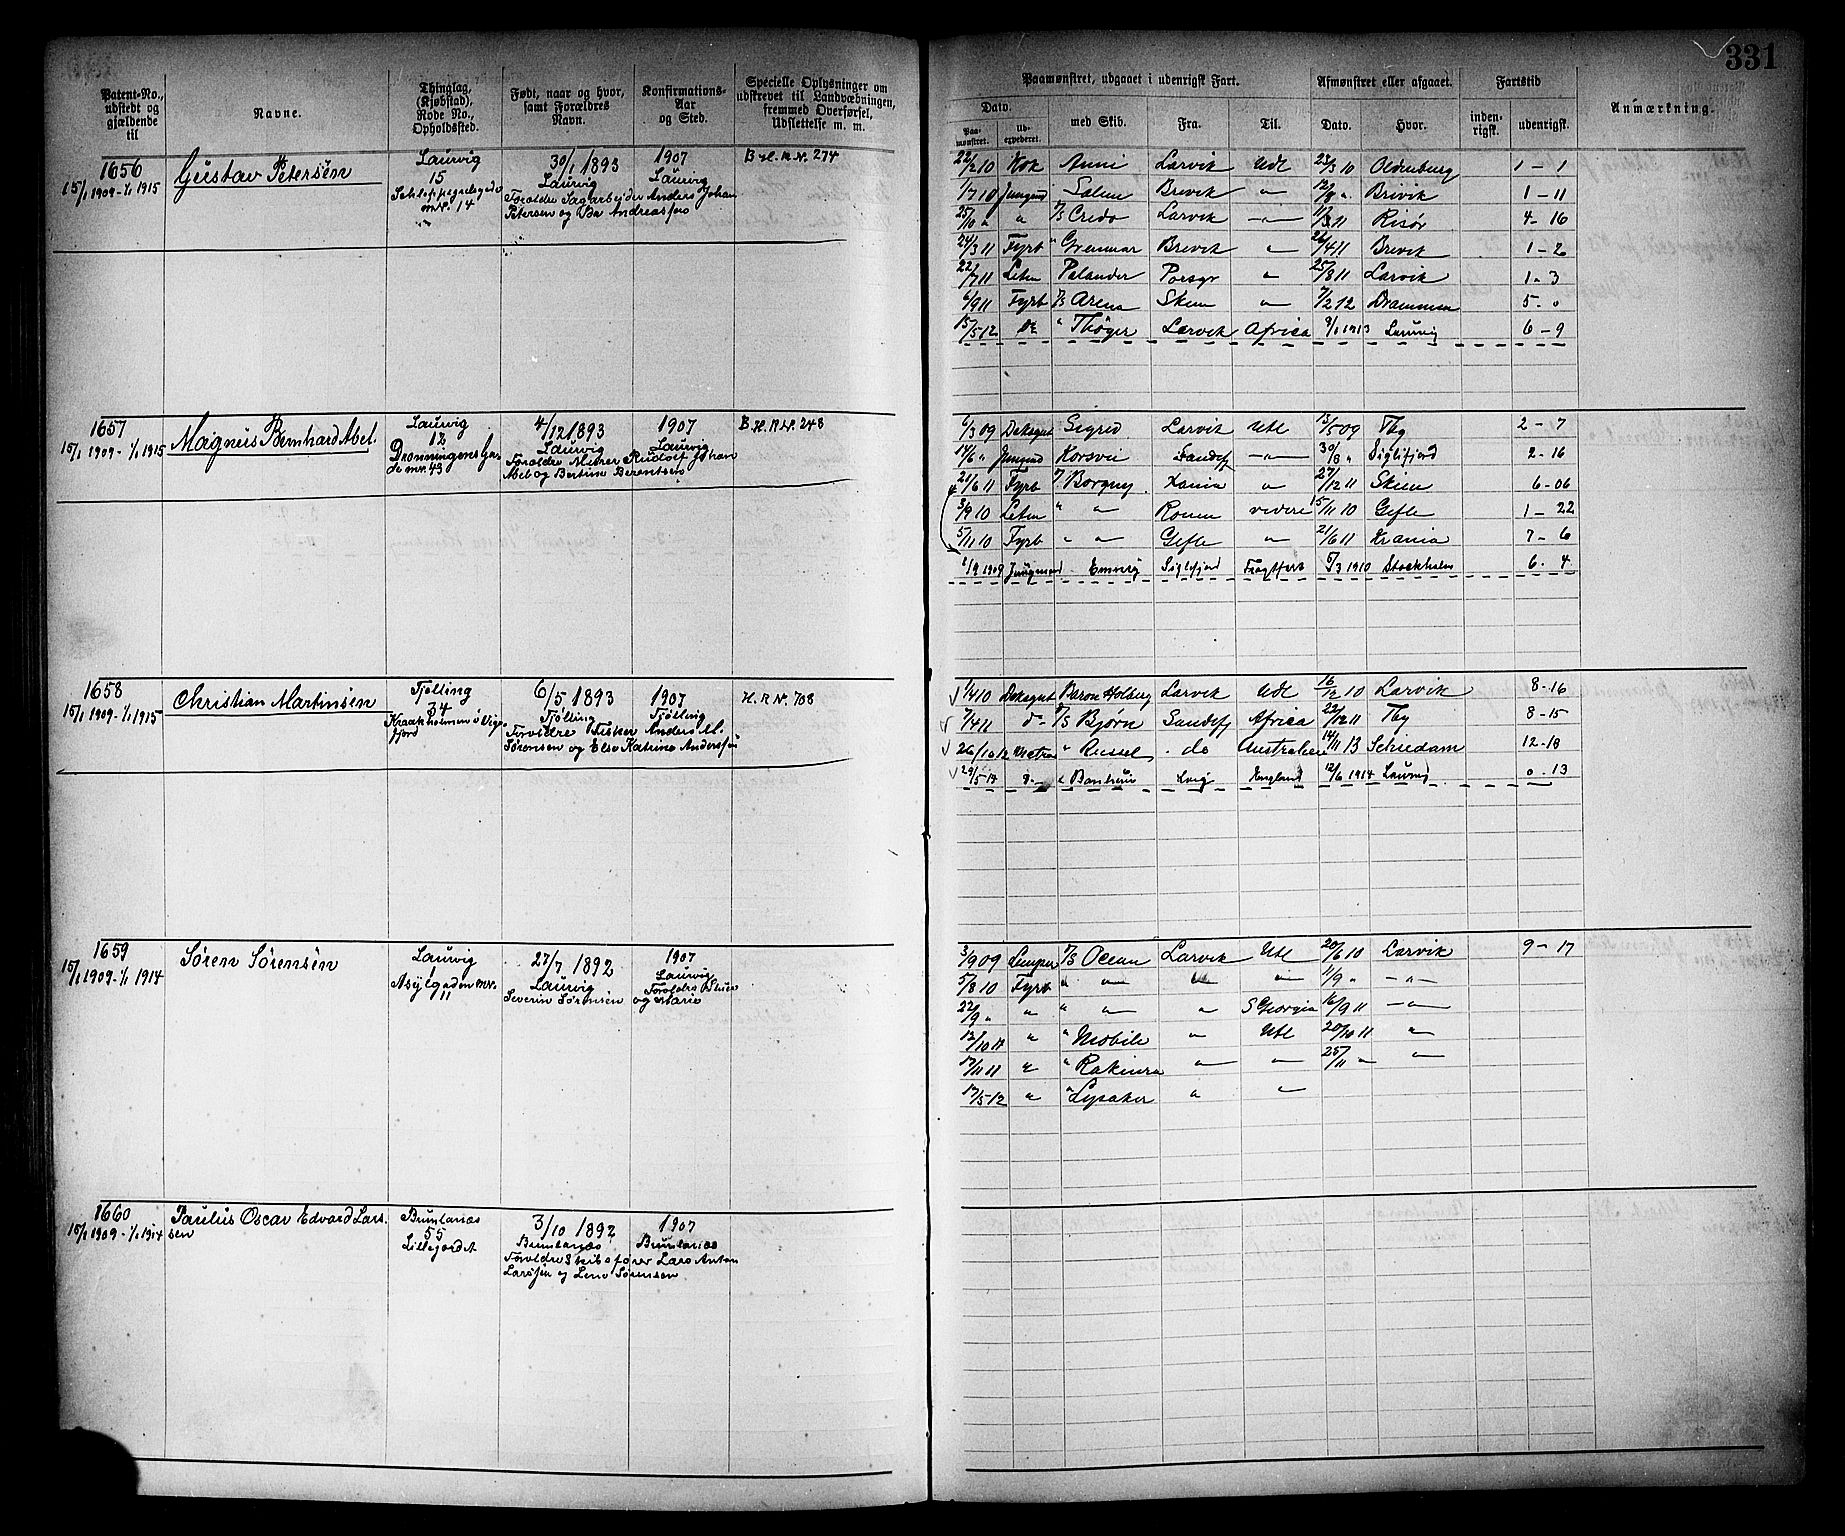 331
Patent-No., udstedt og gjældende til
Navne.
Thinglag, (Kjøbstad), Rode No., Opholdssted.
Født, naar og hvor, samt Forældres Navn.
Konfirmations-Aar og Sted.
Specielle Oplysninger om udskrevet til Landværnningen, fremmed Overførsel, Udslettelse m. m.
Paamønstret, udgaaet i udenrigsk Fart.
Afmønstret eller afgaaet.
Fartstid
Anmærkning.
Dato.
Paa-mønstret.
Ud-expederet.
med Skib.
Fra.
Til.
Dato.
Hvor.
inden-rigsk.
udenrigsk.
1656
15/1 1909-1/1 1915
Gustav Petersen
Laurvig
15
nr. 14
30/1 1893
Laurvig
Forældre Sagarbeider Anders Johan
Petersen og
1907
Laurvig
B H. R. N. 274
22/2 10 Kok Anni Larvik Udl 23/3 10 Oldenburg 1 - 1
1/7 10 Jungmd Salem Brevik " 12/8 " Brevik 1 - 11
25/10 " " D/S Credo Larvik - " - 11/3 11 Risør 4 - 16
24/3 11 Fyrb " Grenmar Brevik " 26/4 11 Brevik 1 - 2
22/7 11 Letm Palander Porsgr " 25/8 11 Larvik 1 - 3
6/9 11 Fyrb D/S Arena Skien " 7/2 12 Drammen 5 - 0
15/5 12 Do " Thøger Larvik Africa 9/1 1913 Laurvig 6 - 9
1657
15/1 1909-1/1 1915
Magnus Bernhard Abel.
Laurvig
12
Dronningens Ga-
de nr. 43
4/12 1893
Laurvig
Forældre Murer Rudolf Johan
Abel og Bertine Berentsen
1907
Laurvig
B. H. R. N. 248
6/3 09 Dæksgut Sigrid Larvik Udl 15/5 09 Tby 2 - 7
14/6 " Jungmd Korsvii Sandefj - " - 30/8 " Siglefjord 2 - 16
21/6 11 Fyrb D/ Borgny Xania " 27/12 11 Skien 6 - 06
3/9 10 Letm " " Rouen videre 15/11 10 Gefle 1 - 22
5/11 10 Fyrb " " Gefle " 21/6 11 Krania 7 - 6
1/9 1909 Jungmand Siglefjord Fragtfart 5/3 1910 Stockholm 6 - 4
1658
15/1 1909-1/1 1915
Christian Martinsen
Tjølling
34
Kraakholmen
fjord
6/5 1893
Tjølling
Forældre Fisker Anders M.
Sørensen og Else Katrine Andersen
1907
Tjølling
H. R. N. 708
1/4 10 Dæksgut Baron Holberg Larvik Udl 16/12 10 Larvik 8 - 16
7/4 11 do D/S Bjørn Sandefj Africa 22/12 11 Tby 8 - 15
26/10 12 Matros " Russel do Australien 14/11 13 Schiedam 12 - 18
29/5 14 Lvig England 12/6 1914 Laurvig 0 - 13
1659
15/1 1909-1/1 1914
Søren Sørensen
Laurvig
Asylgaden nr.
11
27/7 1892
Laurvig
Severin Sørensen
1907
Laurvig
og Marie
3/9 09 Lemper D/S Ocean Larvik Udl 20/6 10 Larvik 9 - 17
5/8 10 Fyrb " " " " 11/9 " - " -
22/9 " " " " " S Georgia 16/9 11 - " -
12/10 11 " " Mobile " Udl 20/10 11 "
17/11 11 " " Rakiura " " 25/11 " "
17/5 12 " " Lysaker " "
1660
15/1 1909-1/1 1914
Paulus Oscar Edvard Lars-
sen
Brunlanæs
55
Lillejordet
3/10 1892
Brunlanæs
Forældre Skibsfører Lars Anton
Larsen og Lene Sørensen
1907
Brunlanæs